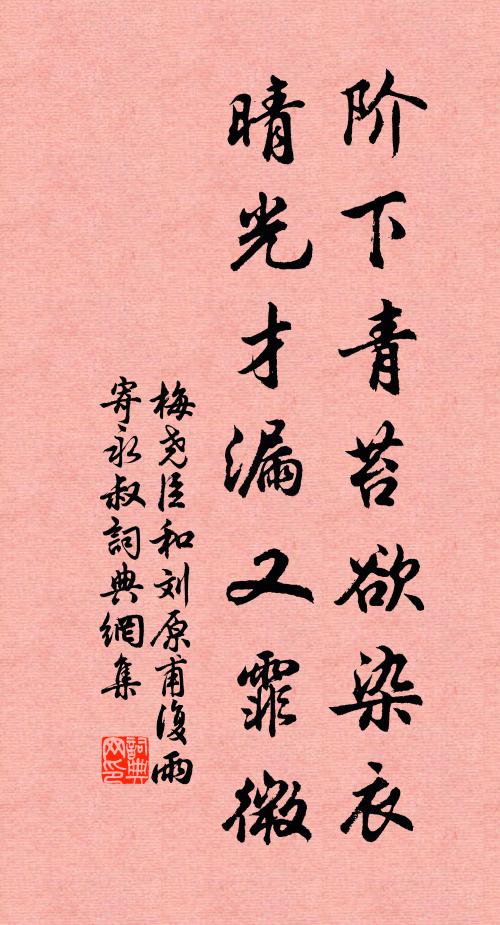 阶下青苔欲染衣
晴光才漏又霏微
梅尧臣和刘原甫復雨
寄永叔詞典網集
詞典
网印